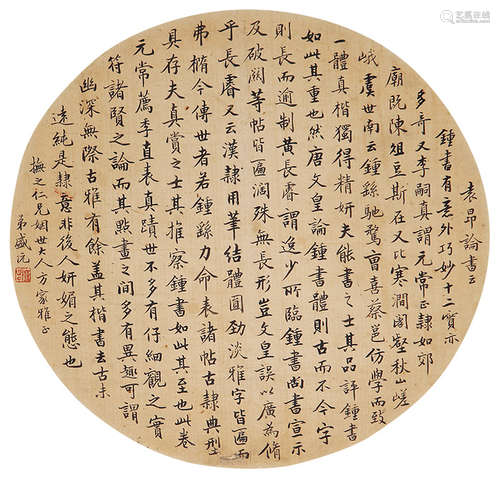 袁昂論書云
鍾書有意外巧妙十二實亦
多奇又李嗣真謂元常正隸如郊
廟既陳俎豆斯在又比寒澗閟壑秋山嵯
峨虞世南云鍾繇馳騖曾喜蔡邕仿學而致
一體真楷獨得精妍夫能書之士其品評鍾書
如此其重也然唐文皇論鍾書體則古而不今字
則長而逾制黃長睿謂逸少所臨鍾書尚書宣示
及破關等帖皆匾濶殊無長形豈文皇誤以廣為脩
乎長睿又云漢隸用筆結體圓勁淡雅字皆匾而
弗楷今傳世者若鍾繇力命表諸帖古隸典型
具存夫真賞之士其推察鍾書如此其至也此卷
元常薦李直表真蹟世不多有仔細觀之實
符諸賢之論而其點畫之間多有異趣可謂
幽深無際古雅有餘蓋其楷書去古未
遠純是隸意非後人妍媚之態也
撫之仁兄姻世大人方家雅正
弟盛沅